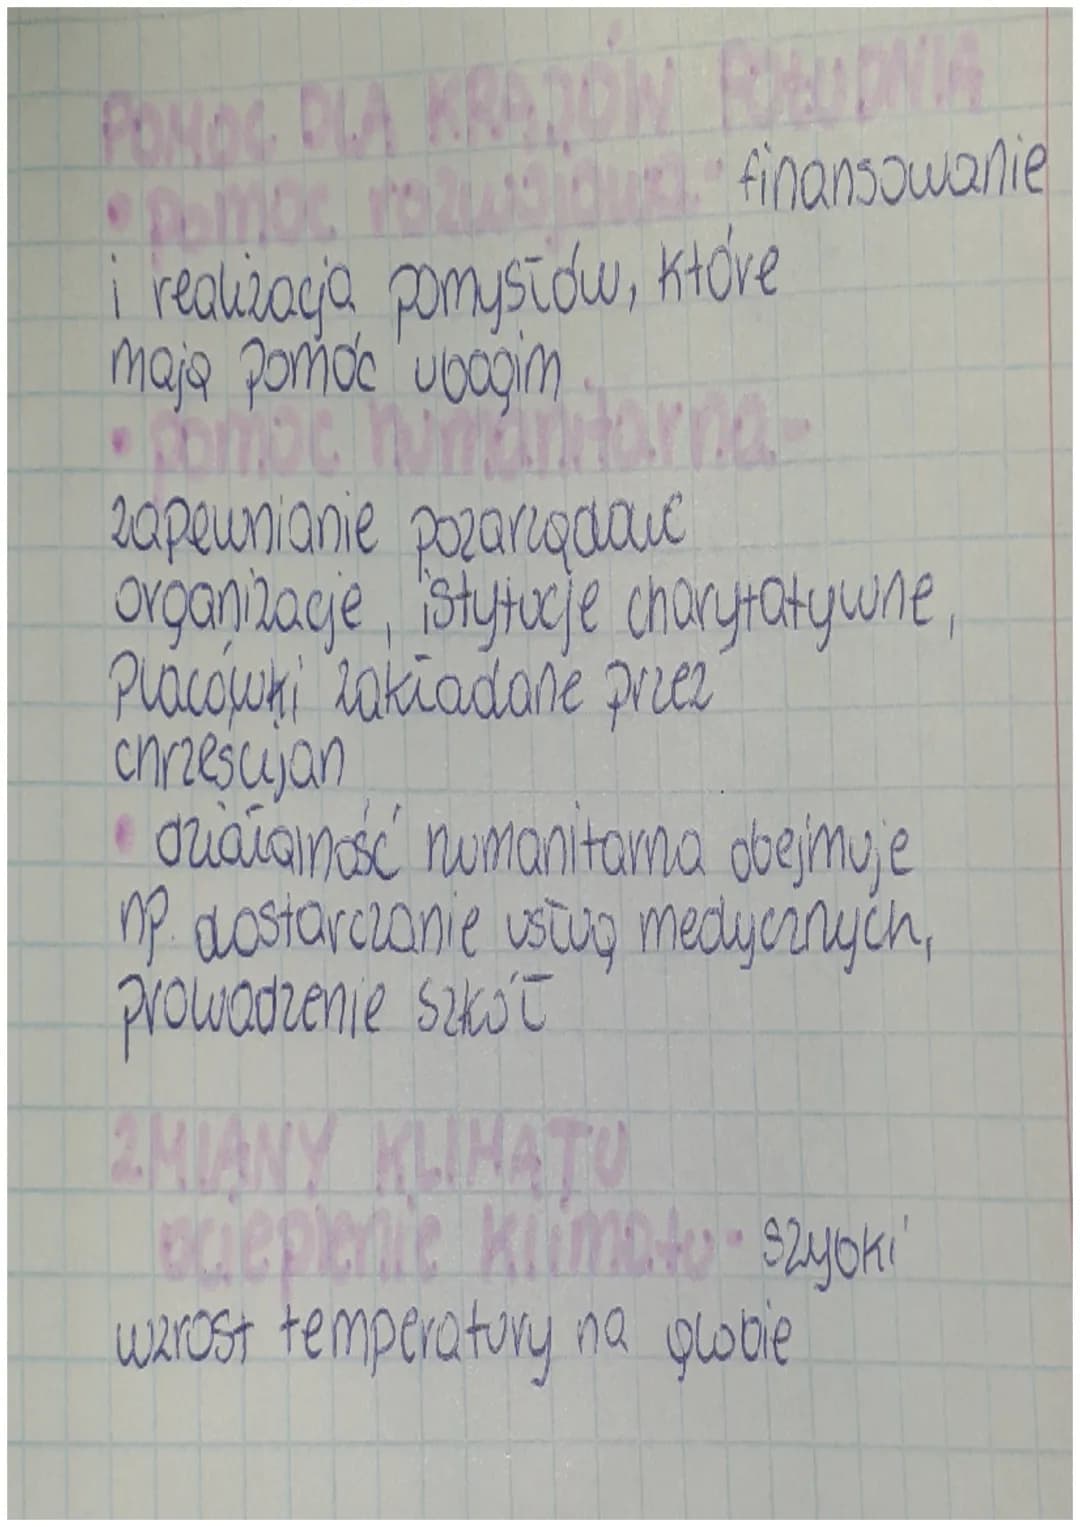 POMOC DLA KRAJÓW POŁUDNIA
• pomoc rozwojowa - finansowanie
i realizacja pomysłów, które
mają pomóc ubogim
• pomoc humanitarna -
zapewnianie
organizacje, istytucje charytatywne,
placówki zakładane przez
chrześcijan
• działalność humanitarna obejmuje
np. dostarczanie usług medycznych,
prowadzenie szkół
ZMIANY KLIMATU
ocieplenie klimatu - szybki
wzrost temperatury na globie